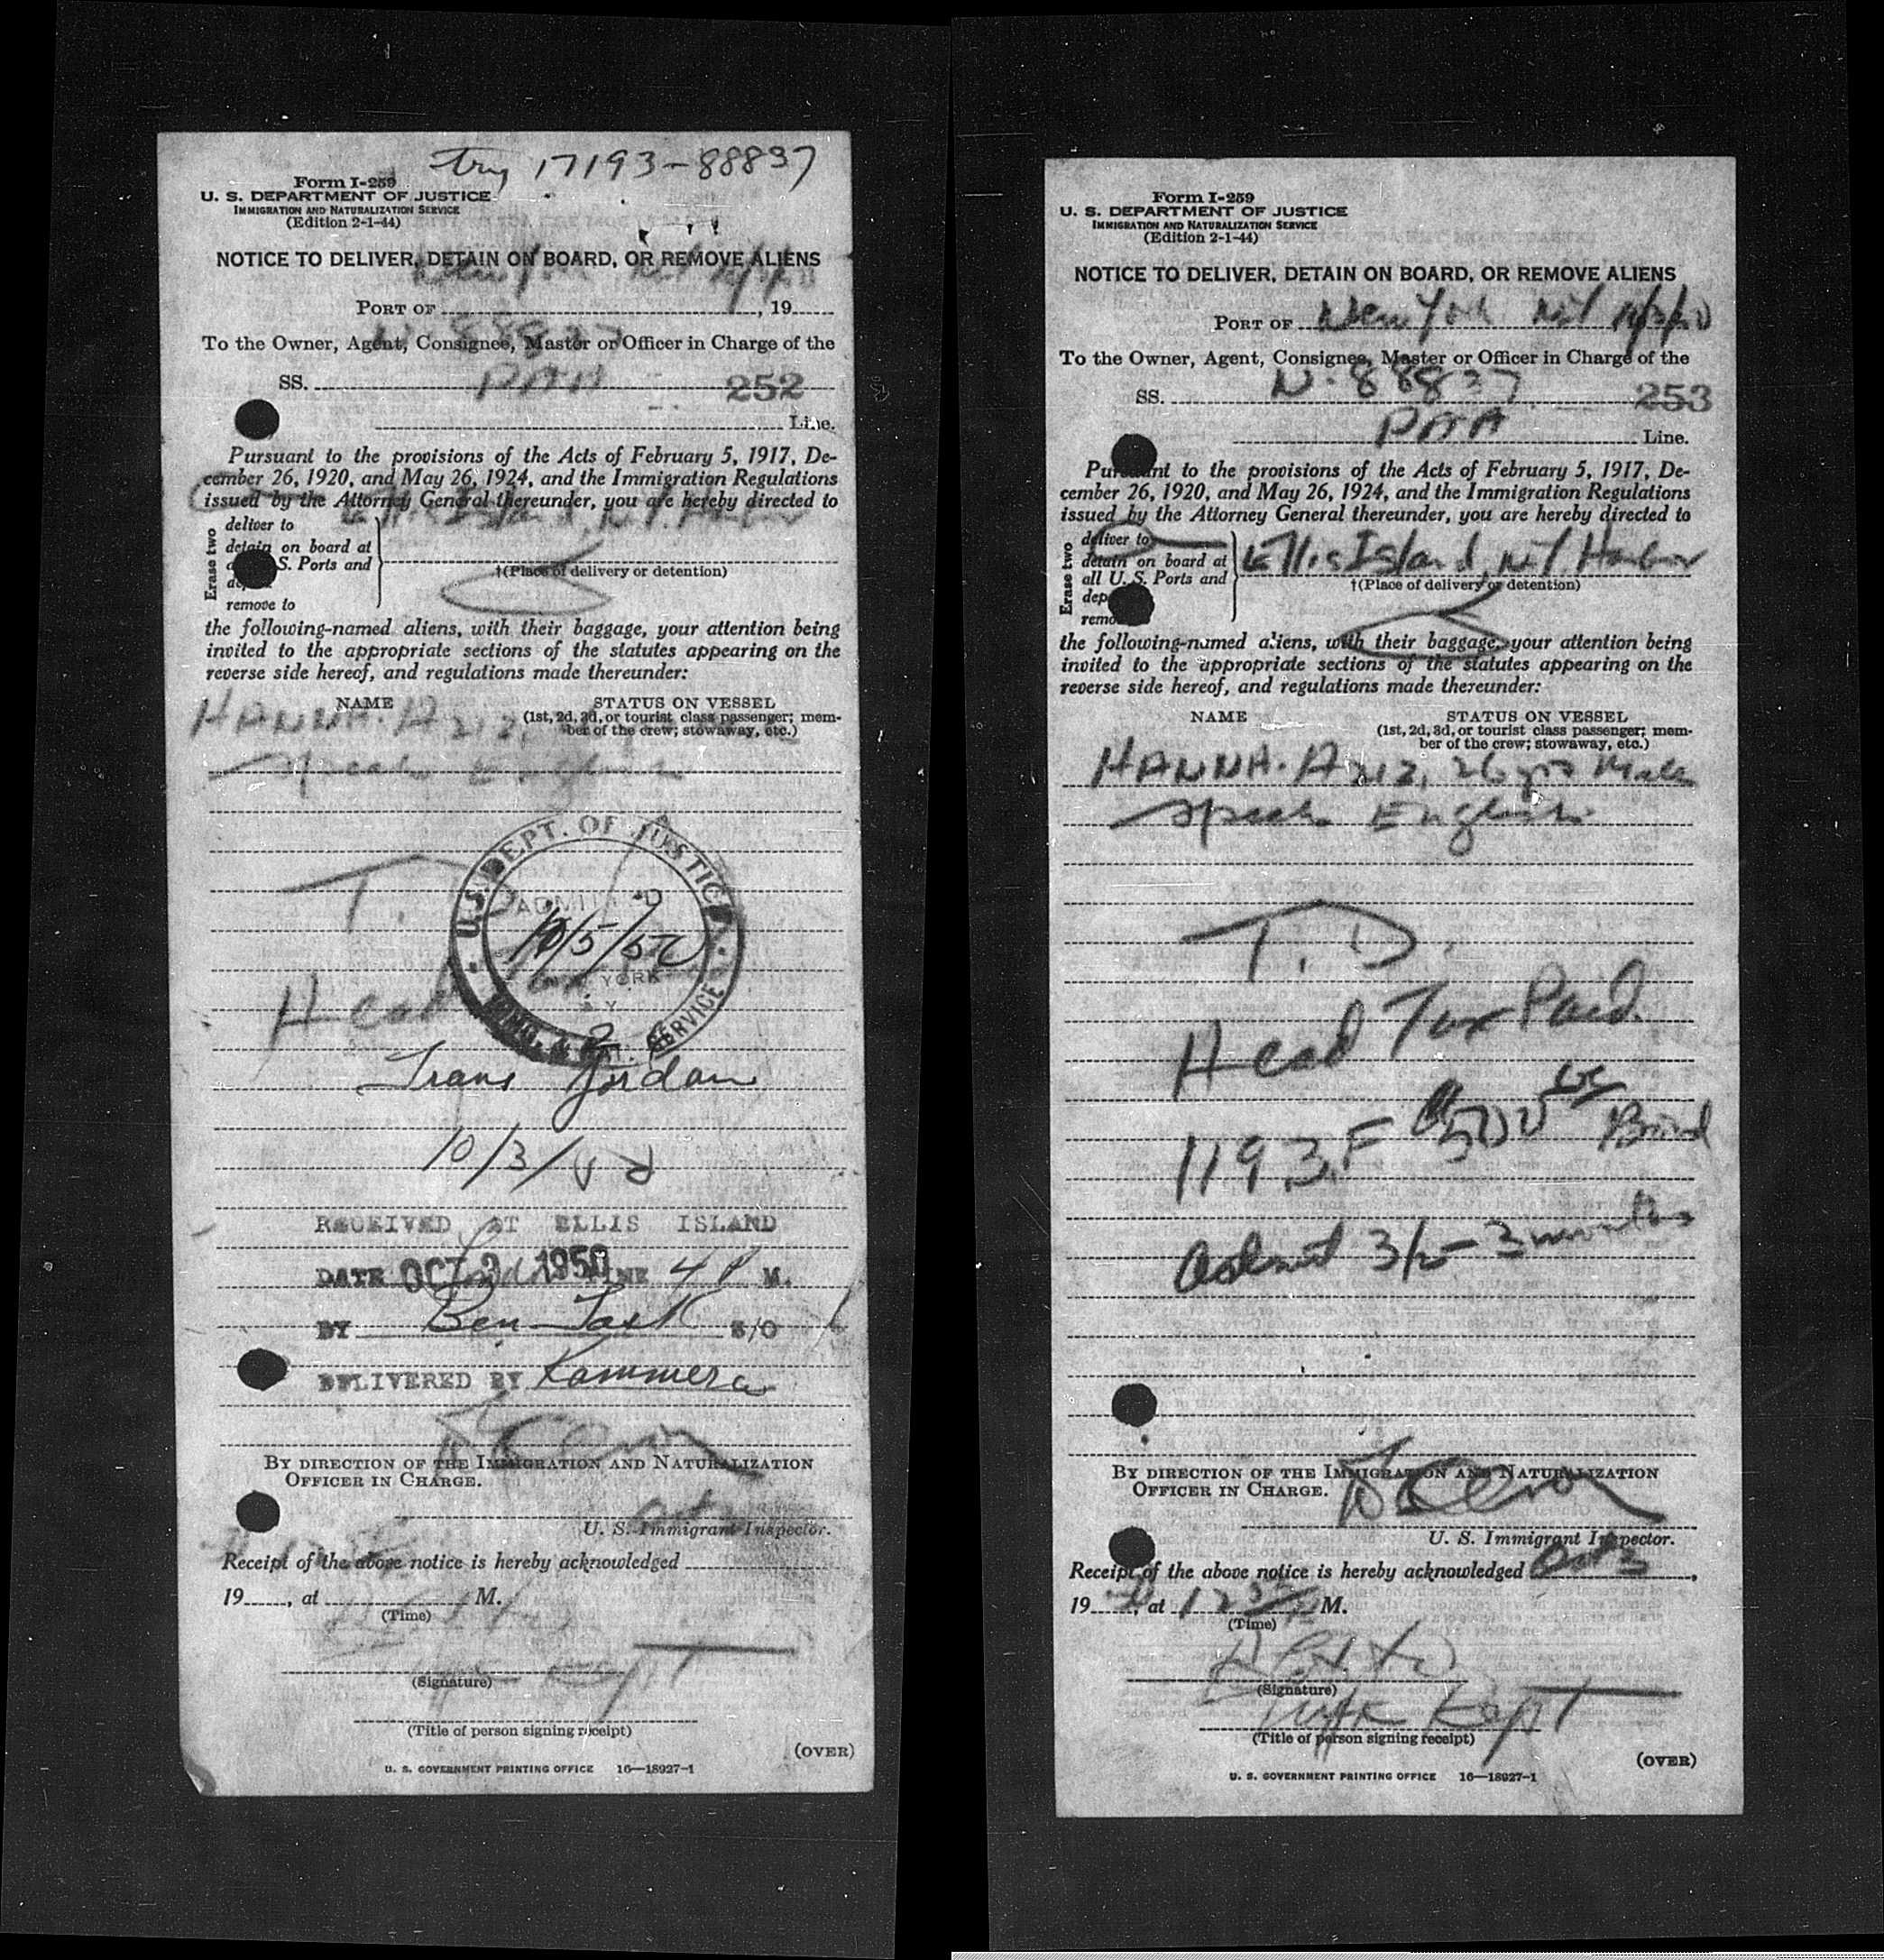 try 17193-88837
Form I-259
U. S. DEPARTMENT OF JUSTICE
IMMIGRATION AND NATURALIZATION SERVICE
(Edition 2-1-44)
NOTICE TO DELIVER, DETAIN ON BOARD, OR REMOVE ALIENS
New York
PORT OF , 19
N-88837
To the Owner, Agent, Consignee, Master or Officer in Charge of the
SS. PAA 252
Line.
Pursuant to the provisions of the Acts of February 5, 1917, De-
cember 26, 1920, and May 26, 1924, and the Immigration Regulations
issued by the Attorney General thereunder, you are hereby directed to
Ellis Island, N.Y. Harbor
Erase two
deliver to
detain on board at
S. Ports and
remove to
†(Place of delivery or detention)
the following-named aliens, with their baggage, your attention being
invited to the appropriate sections of the statutes appearing on the
reverse side hereof, and regulations made thereunder:
NAME STATUS ON VESSEL
(1st, 2d, 3d, or tourist class passenger; mem-
ber of the crew; stowaway, etc.)
HANNA. Aziz,
Speaks English
U.S. DEPT. OF JUSTICE
T.
ADMITTED
10/5/50
YORK
Head
SERVICE
Trans Jordan
10/3/
RECEIVED AT ELLIS ISLAND
DATE OCT 3 1950 TIME 4 P M.
BY Ben Task S/O
DELIVERED BY Kammerer
BY DIRECTION OF THE IMMIGRATION AND NATURALIZATION
OFFICER IN CHARGE.
U. S. Immigrant Inspector.
Receipt of the above notice is hereby acknowledged
19 , at M.
(Time)
(Signature)
(Title of person signing receipt)
(OVER)
U. S. GOVERNMENT PRINTING OFFICE 16—18927-1
Form I-259
U. S. DEPARTMENT OF JUSTICE
IMMIGRATION AND NATURALIZATION SERVICE
(Edition 2-1-44)
NOTICE TO DELIVER, DETAIN ON BOARD, OR REMOVE ALIENS
PORT OF New York NY 10/3/50
To the Owner, Agent, Consignee, Master or Officer in Charge of the
SS. N-88837 253
PAA Line.
Pursuant to the provisions of the Acts of February 5, 1917, De-
cember 26, 1920, and May 26, 1924, and the Immigration Regulations
issued by the Attorney General thereunder, you are hereby directed to
Erase two
deliver to
detain on board at
all U. S. Ports and
Ellis Island, N.Y. Harbor
†(Place of delivery or detention)
the following-named aliens, with their baggage, your attention being
invited to the appropriate sections of the statutes appearing on the
reverse side hereof, and regulations made thereunder:
NAME STATUS ON VESSEL
(1st, 2d, 3d, or tourist class passenger; mem-
ber of the crew; stowaway, etc.)
HANNA. Aziz, 26 yrs Male
Speaks English
T.D.
Head Tax Paid.
1193.F $500 Bond
Admit 3/2 - 3 months
BY DIRECTION OF THE IMMIGRATION AND NATURALIZATION
OFFICER IN CHARGE.
U. S. Immigrant Inspector.
Receipt of the above notice is hereby acknowledged Oct 3,
19 , at 12 M.
(Time)
(Signature)
(Title of person signing receipt)
(OVER)
U. S. GOVERNMENT PRINTING OFFICE 16—18927-1